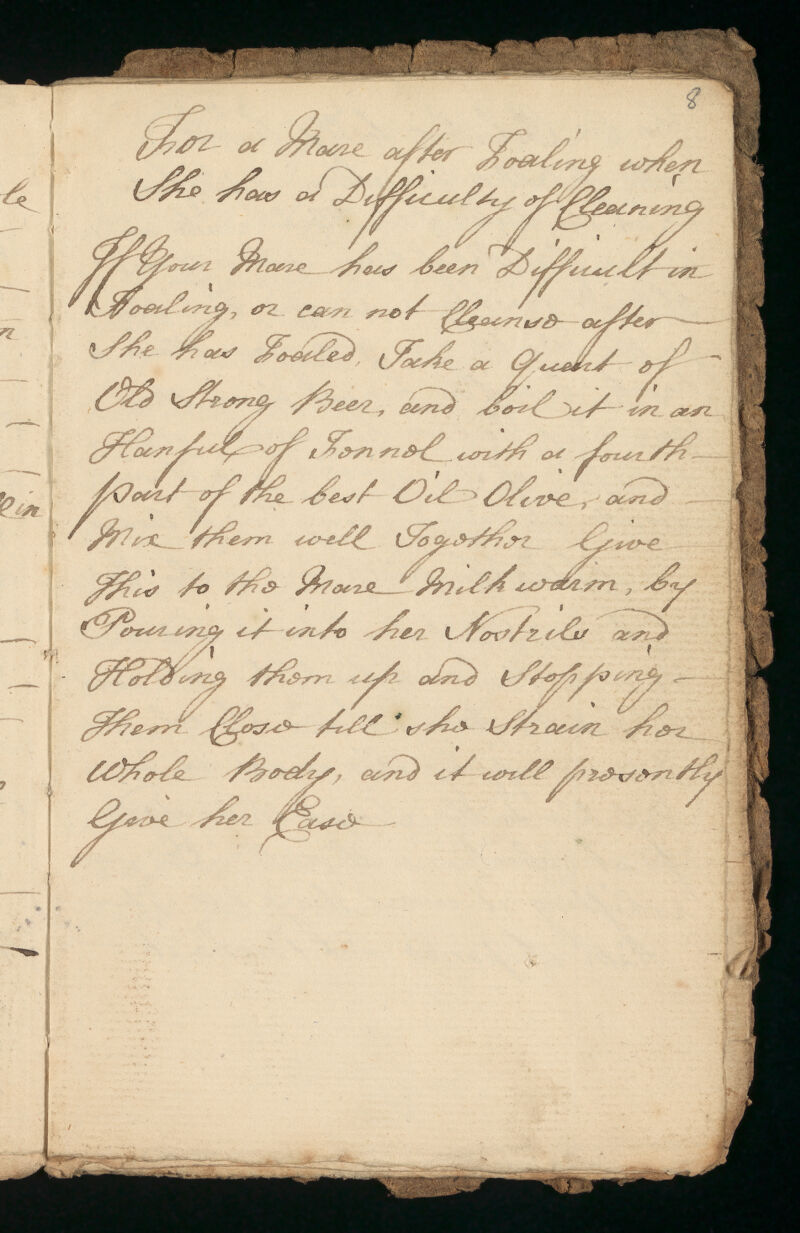 8
For a Mare after Foaling when
She has a Difficulty of Cleaning
If Your Mare has been Difficult in
Foaling, or can not Cleanse after
She has Foaled, Take a Quart of
Old Strong Beer, and boil it in an
Hanful of Fennel with a fourth
part of the best Oil Olive, and
Mix them well Together Give
This to the Mare Milk warm, by
Pouring it into her Nostrils and
Holding them up and Stopping
Them Close till she Strain her
Whole Body, and it will presently
Give her Ease